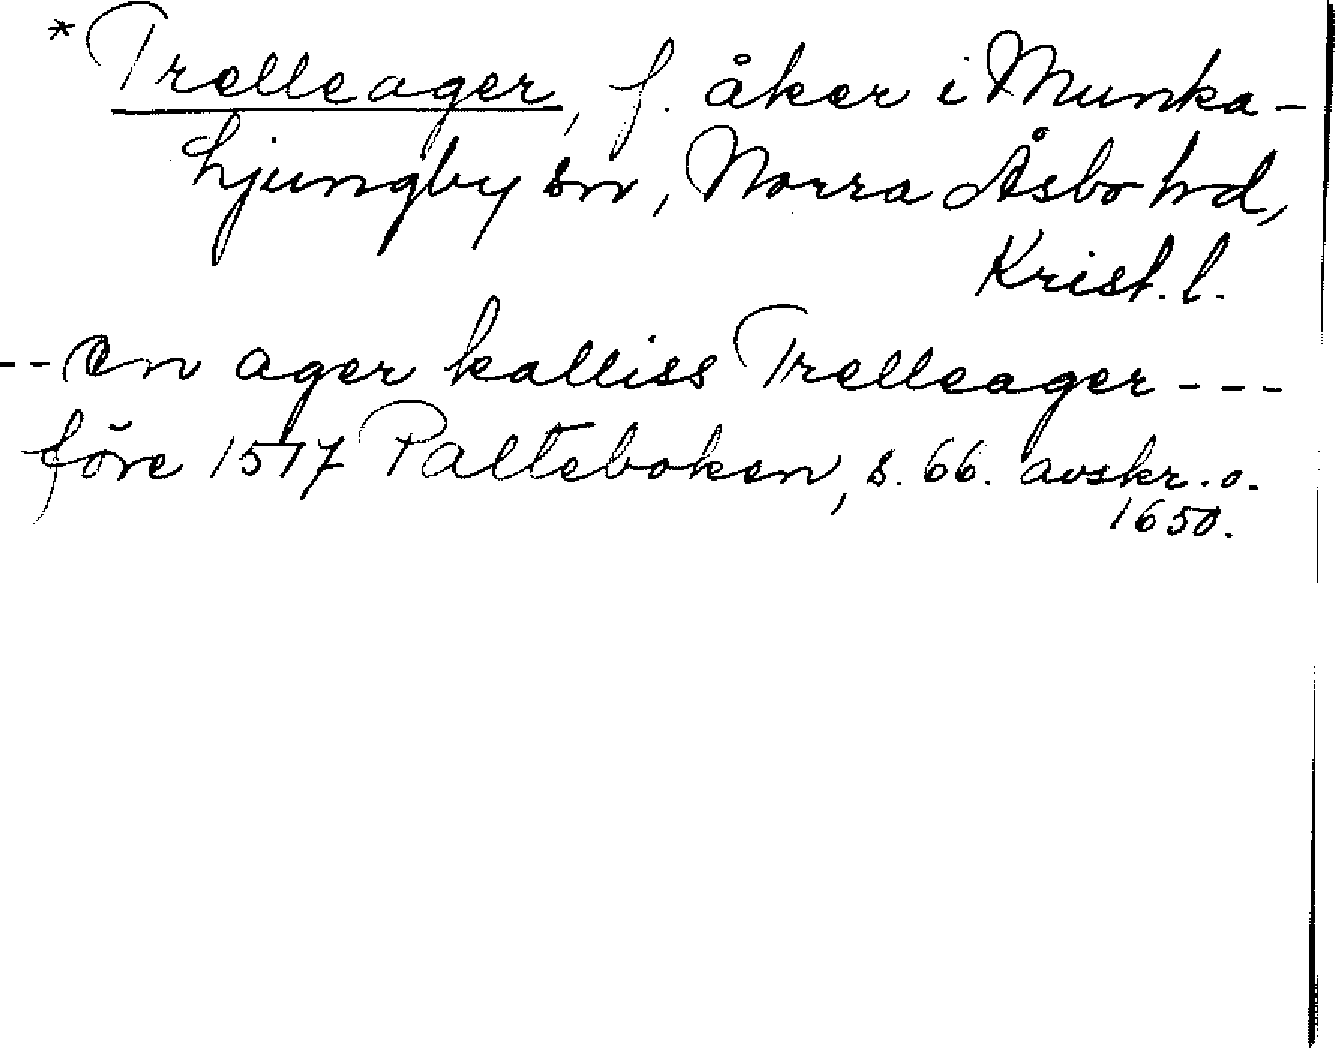 * Trelleager, f. åker i Munka-
Ljungby sn, Norra Åsbo hd,
Krist. l.
-- en ager kalliss Trelleager ---
före 1517 Palteboken, s. 66. avskr. o.
1650.